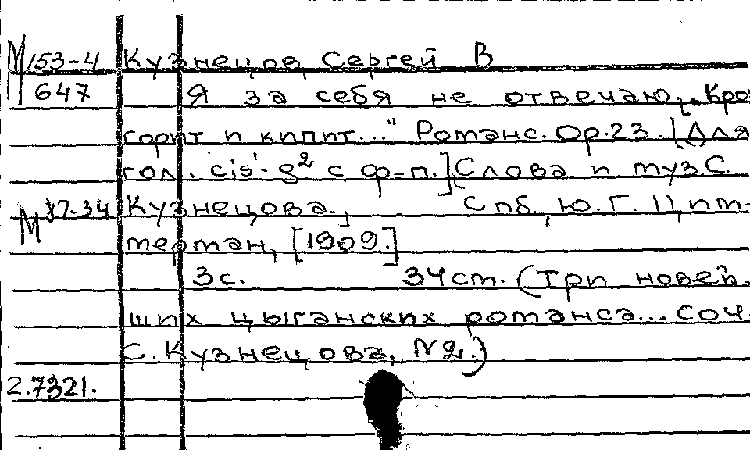 М 153-4 Кузнецов, Сергей В
647 Я за себя не отвечаю, „Кро
горит и кипит..." Романс. Ор.23. [Для
гол. cis'-g² с ф-п.] Слова и муз. С.
М 87-34 Кузнецова. Спб, Ю.Г. Цим-
мерман, [1909.]
3с. 34см. (Три новей-
ших цыганских романса... соч.
С. Кузнецова, №2.)
2.7321.